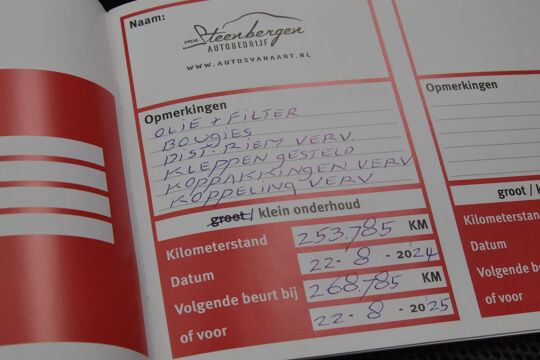 Naam:
van Steenbergen
AUTOBEDRIJF
WWW.AUTOSVANAART.NL
Opmerkingen
OLIE + FILTER
BOUGIES
DIST. RIEM VERV.
KLEPPEN GESTELD
KOPPAKKINGEN VERV
KOPPELING VERV
groot / klein onderhoud
Kilometerstand 253.785 KM
Datum 22-8-2024
Volgende beurt bij 268.785 KM
of voor 22-8-2025
Opmerkingen
groot / k
Kilometerstand
Datum
Volgende beurt
of voor